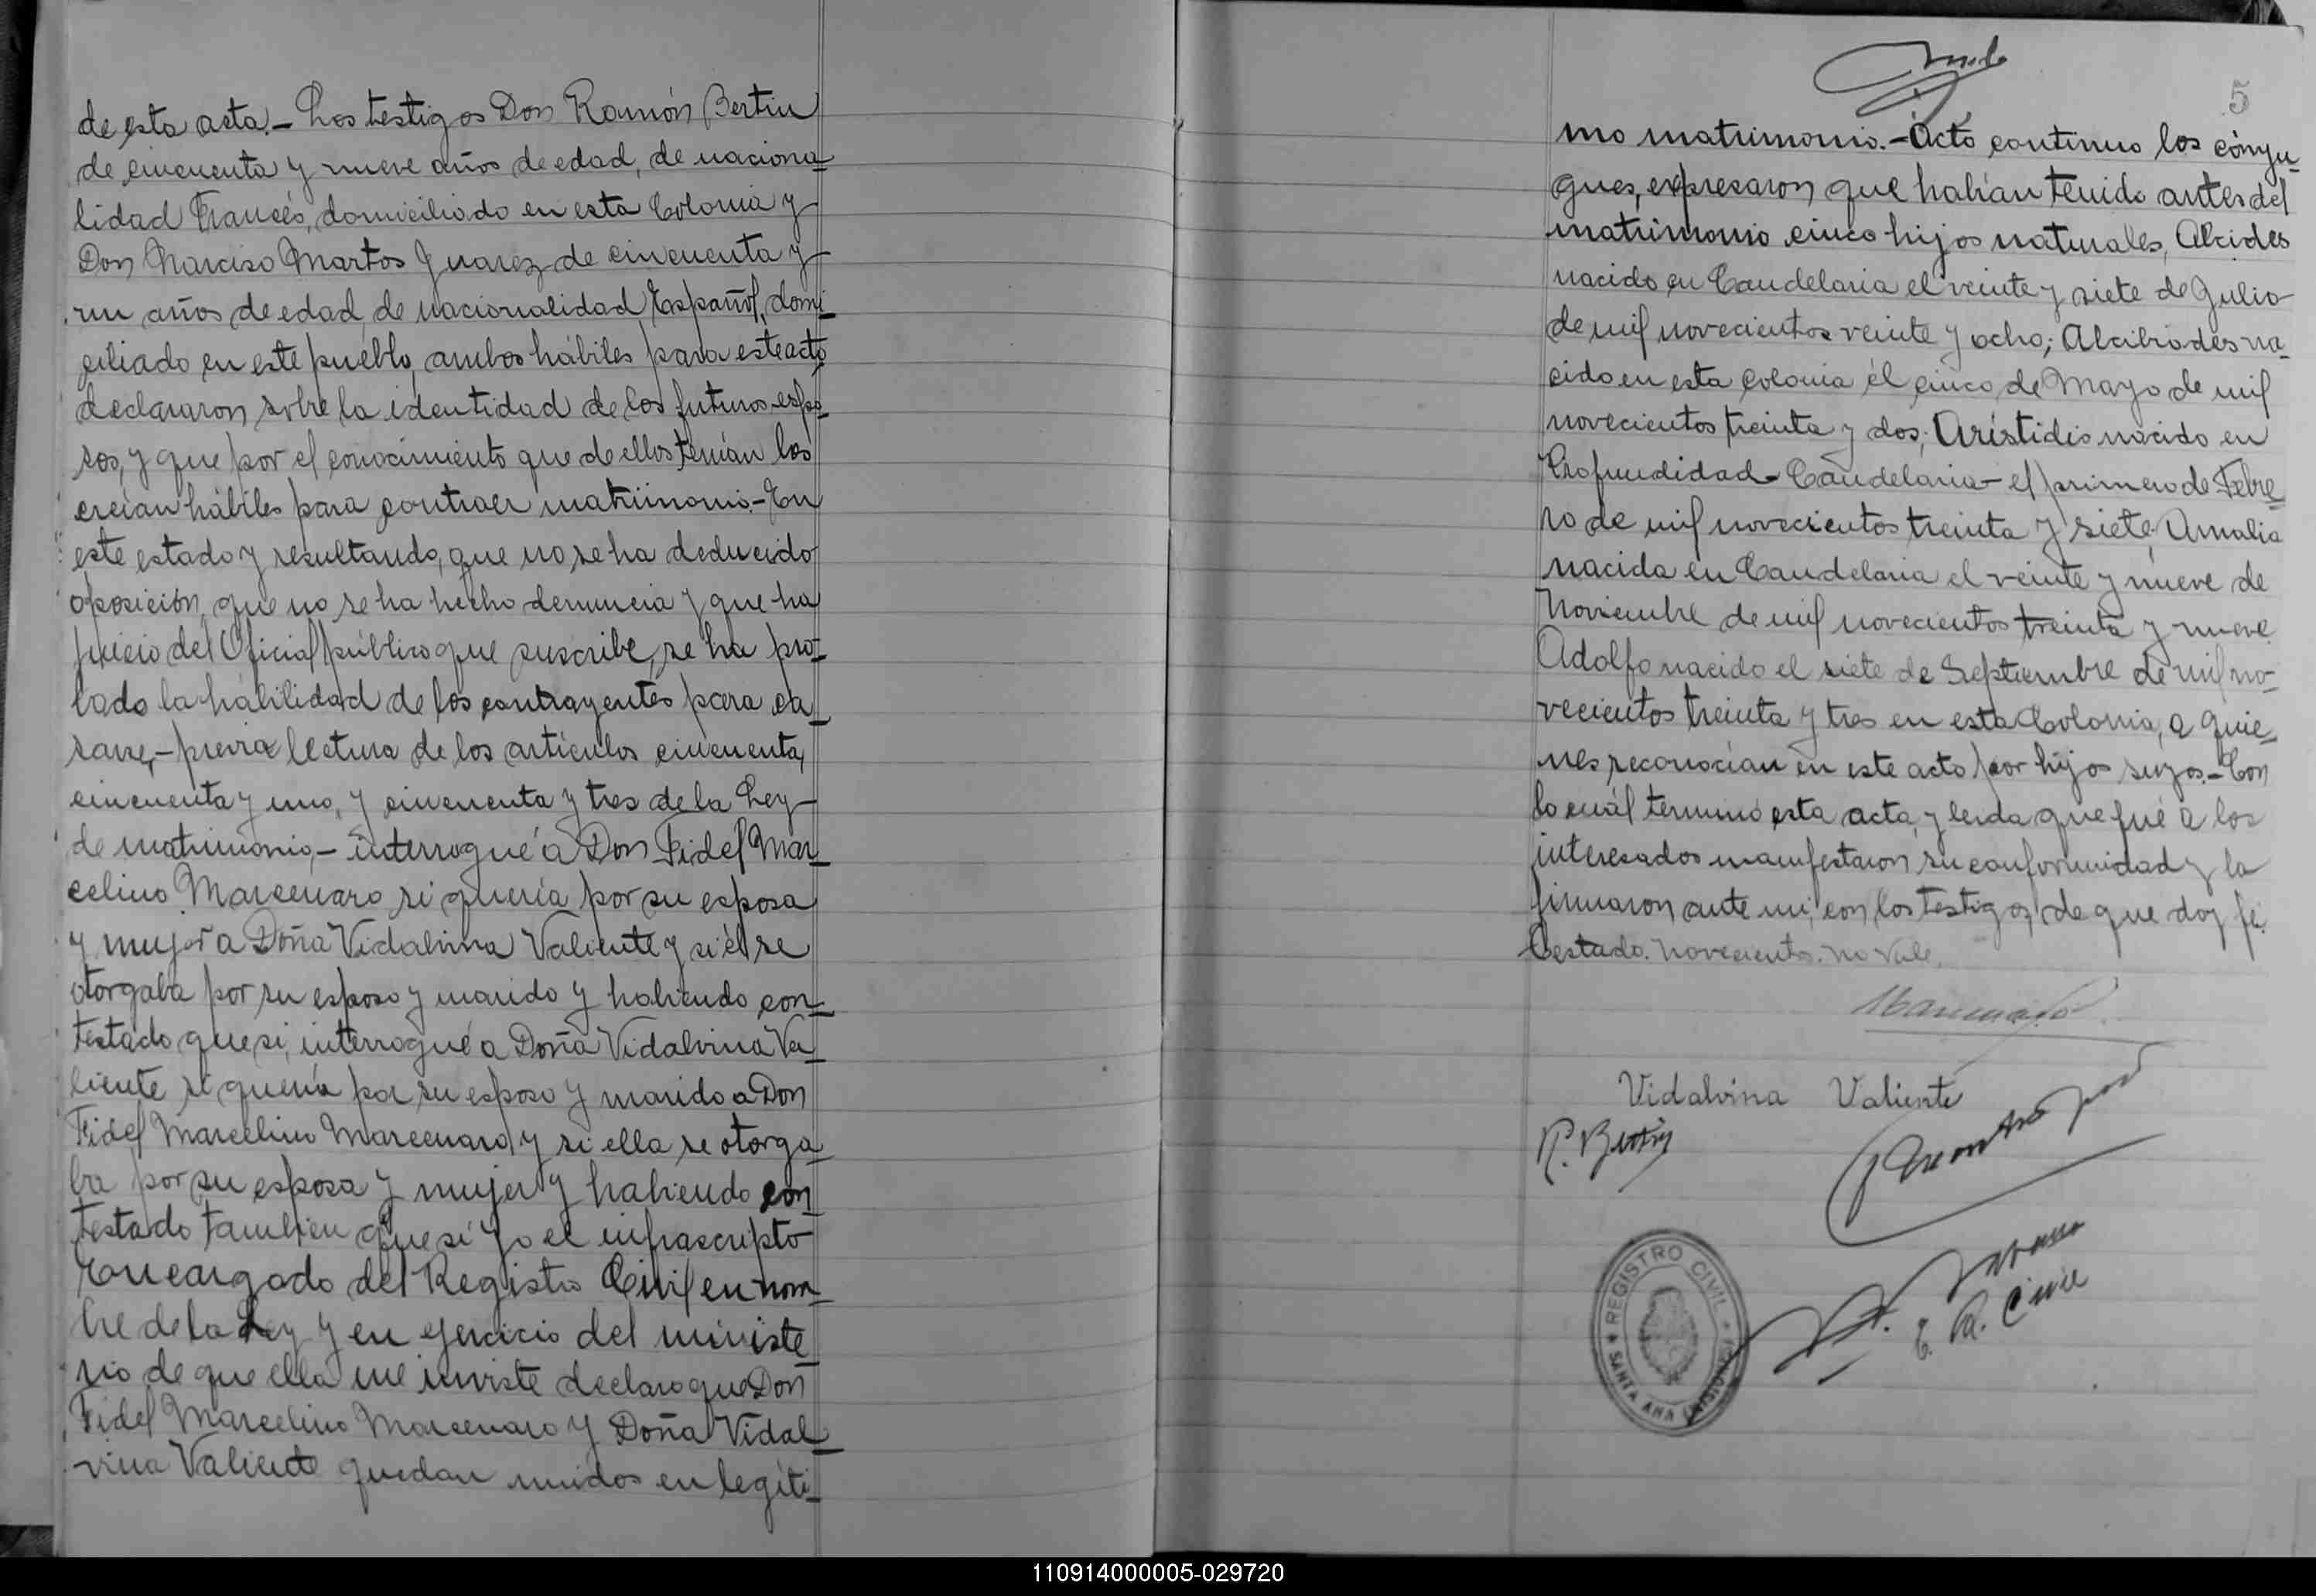 de esta acta.- Los testigos Don Ramón Bertin
de cincuenta y nueve años de edad, de naciona-
lidad Francés, domiciliado en esta Colonia y
Don Narciso Martos Juarez de cincuenta y
un años de edad, de nacionalidad Español, domi-
ciliado en este pueblo, ambos hábiles para este acto
declararon sobre la identidad de los futuros espo-
sos, y que por el conocimiento que de ellos tenían los
creían hábiles para contraer matrimonio.- En
este estado y resultando, que no se ha deducido
oposición, que no se ha hecho denuncia y que ha
juicio del Oficial público que suscribe, se ha pro-
bado la habilidad de los contrayentes para ca-
sarse,- previa lectura de los artículos cincuenta,
cincuenta y uno, y cincuenta y tres de la Ley
de matrimonio,- interrogué á Don Fidel Mar-
celino Marcenaro si quería por su esposa
y mujer a Doña Vidalvina Valiente y si él se
otorgaba por su esposo y marido y habiendo con-
testado que si, interrogué a Doña Vidalvina Va-
liente si quería por su esposo y marido a Don
Fidel Marcelino Marcenaro y si ella se otorga-
ba por su esposa y mujer y habiendo con-
testado tambien que si yo el infrascripto
Encargado del Registro Civil en nom-
bre de la Ley y en ejercicio del ministe-
rio de que ella me inviste declaro que Don
Fidel Marcelino Marcenaro y Doña Vidal-
vina Valiente quedan unidos en legíti-
5
mo matrimonio.- Acto continuo los cónyu-
gues, expresaron que habían tenido antes del
matrimonio cinco hijos naturales, Alcides
nacido en Candelaria el veinte y siete de Julio
de mil novecientos veinte y ocho; Alcibiades na-
cido en esta colonia el cinco de Mayo de mil
novecientos treinta y dos; Arístidis nacido en
Profundidad- Candelaria- el primero de Febre-
ro de mil novecientos treinta y siete, Amalia
nacida en Candelaria el veinte y nueve de
Noviembre de mil novecientos treinta y nueve
Adolfo nacido el siete de Septiembre de mil no-
vecientos treinta y tres en esta Colonia, a quie-
nes reconocían en este acto por hijos suyos.- Con
lo cuál terminó esta acta, y leída que fué a los
interesados manifestaron su conformidad y la
firmaron ante mi, con los testigos, de que doy fé.
Testado. novecientos. no vale.
Vidalvina Valiente
R. Bertin
E. R. Civil
REGISTRO CIVIL
SANTA ANA (MISIONES)
110914000005-029720